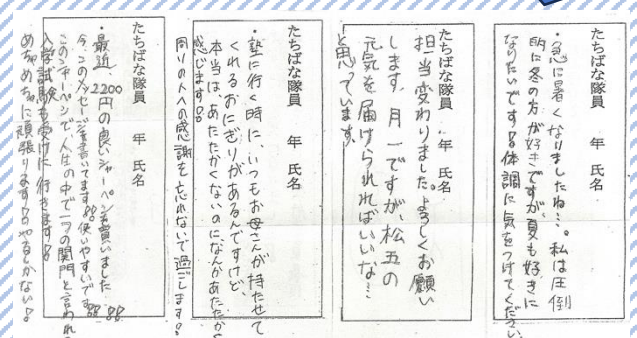 たちばな隊員　年　氏名
・急に暑くなりましたね…。私は圧倒
的に冬の方が好きですが、夏も好きに
なりたいです!!体調に気をつけてください
たちばな隊員　年　氏名
担当変わりました。よろしくお願い
します。月一ですが、松五の
元気を届けられればいいな…
と思っています。
たちばな隊員　年　氏名
・塾に行く時に、いつもお母さんが持たせて
くれるおにぎりがあるんですけど、
本当は、あたたかくないのになんかあたたかく
感じます!!
周りの人への感謝を忘れないで過ごします!
たちばな隊員　年　氏名
・最近、2200円の良いシャーペンを買いました
今、このメッセージを書いてます!!使いやすいです!!
このシャーペンで、人生の中で一つの関門と言われる
入学試験を受けに行きます!!
めちゃめちゃに頑張ります!!やるしかない!